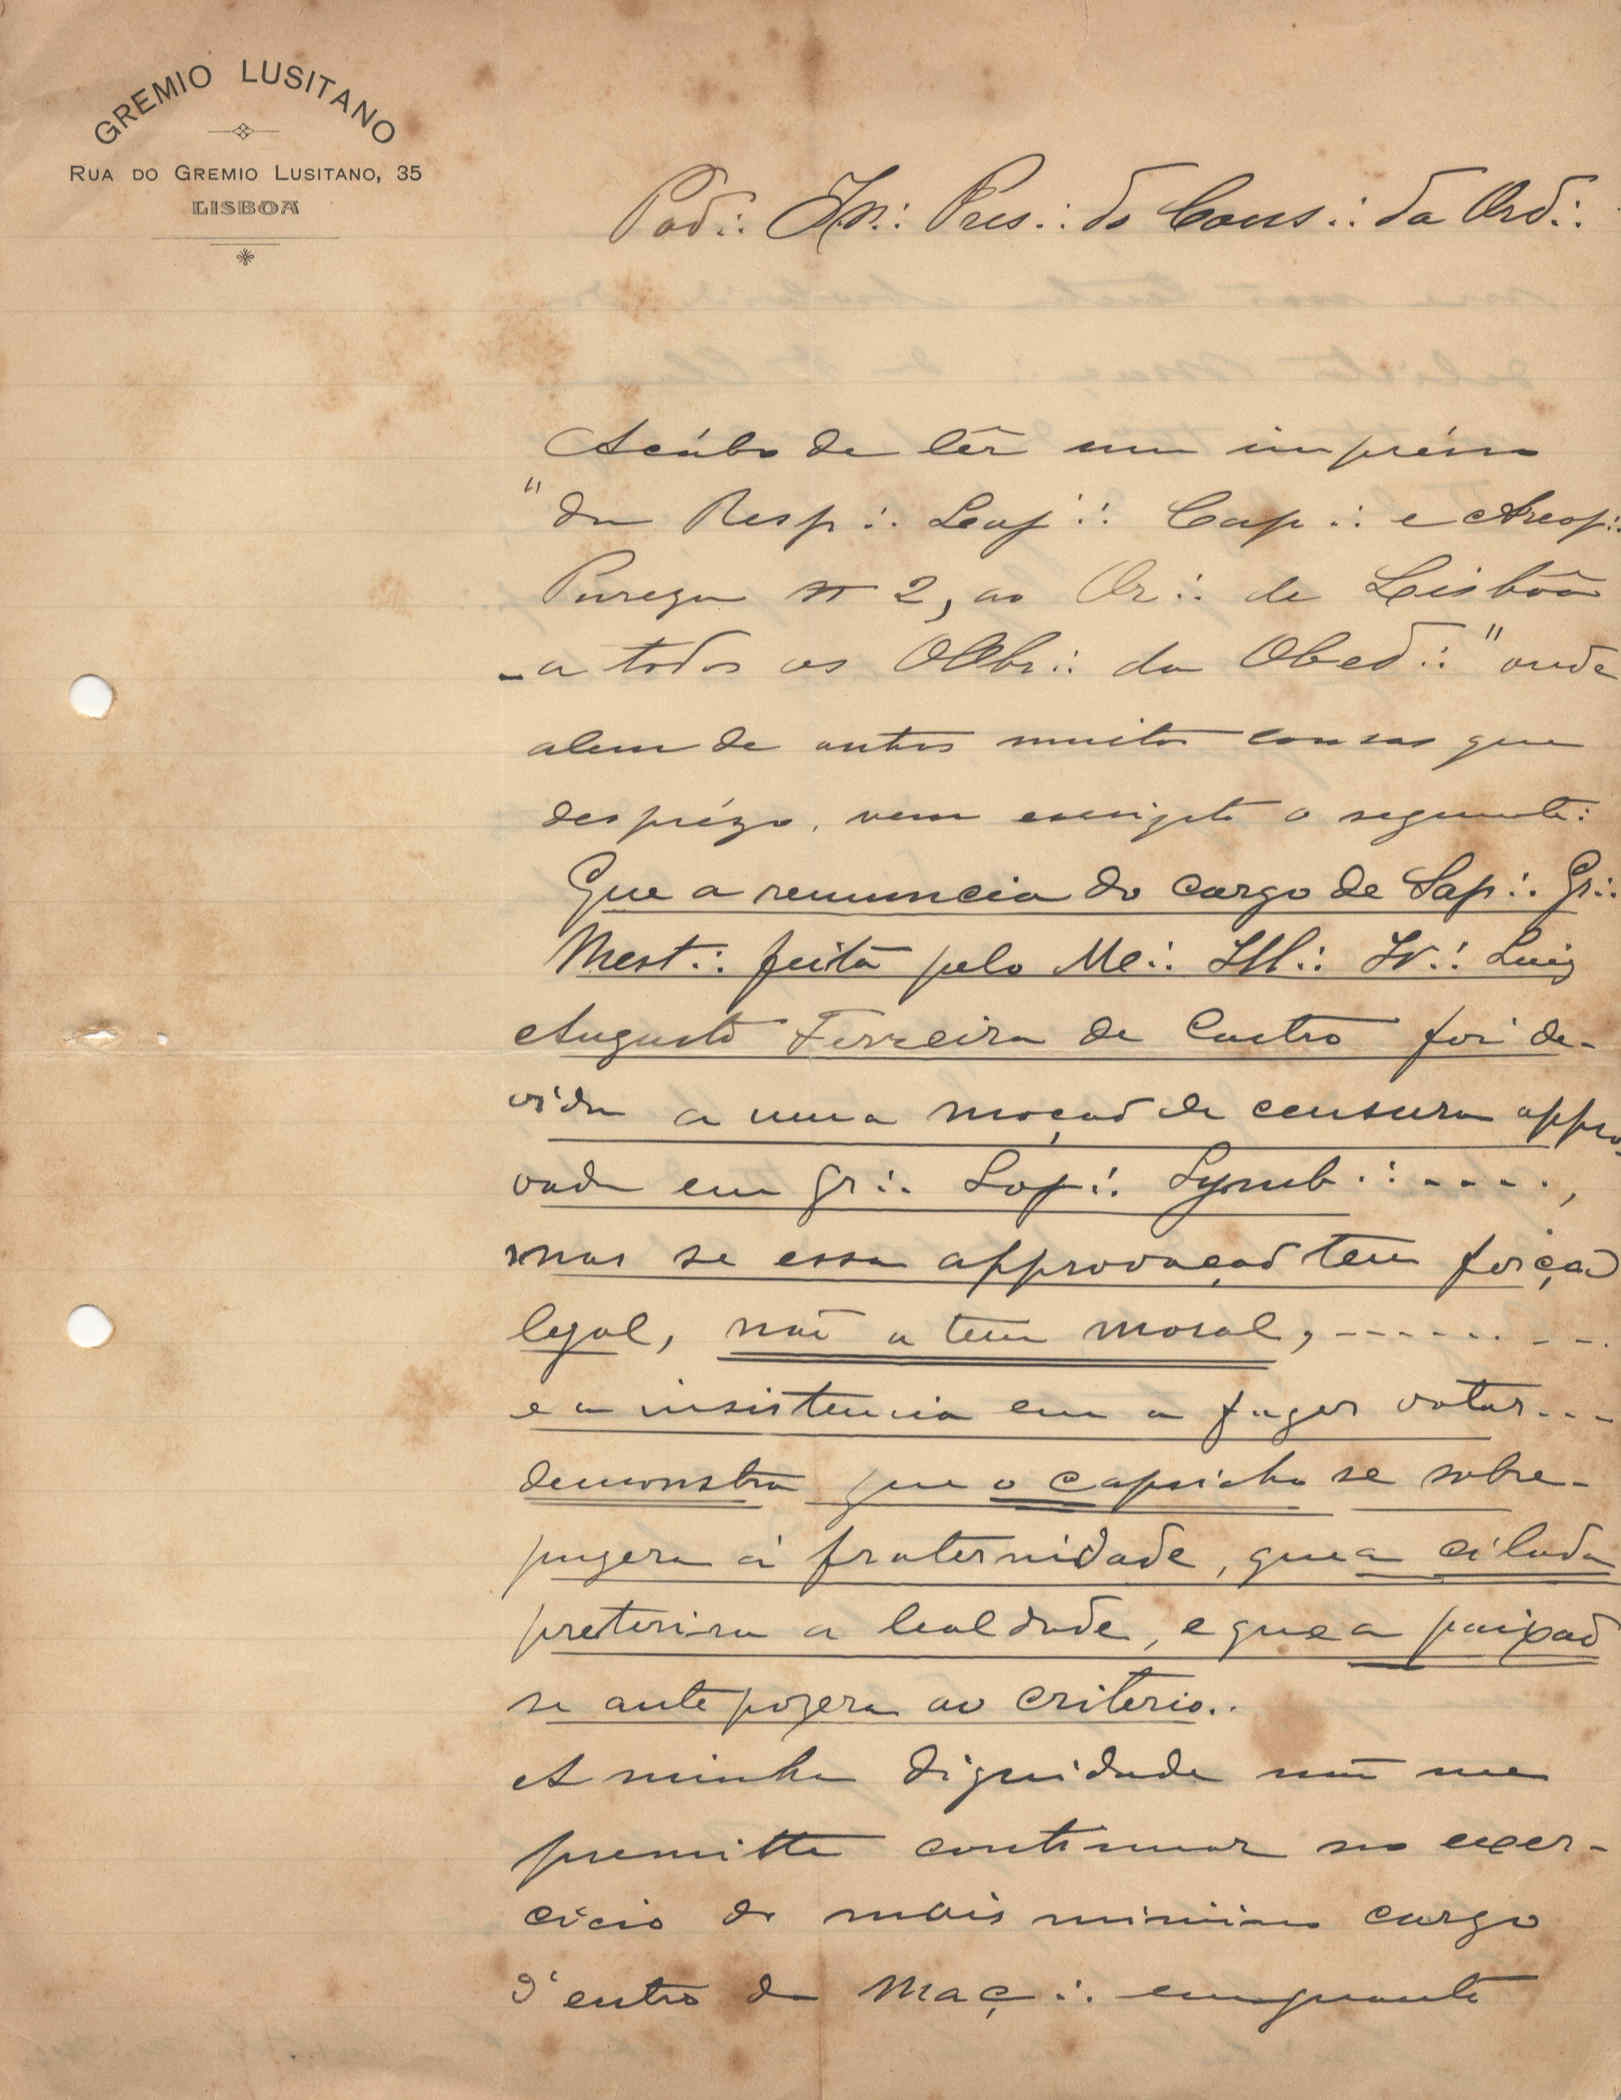 GREMIO LUSITANO
RUA DO GREMIO LUSITANO, 35
LISBOA
Pod∴ Ir∴ Pres∴ do Cons∴ da Ord∴
Acábo de lêr um imprésso
"da Resp∴ Loj∴ Cap∴ e Areop∴
Pureza nº 2, ao Or∴ de Lisbôa
- a todos os OObr∴ da Obed∴" onde
alem de outras muitas cousas que
desprézo, vem escripto o seguinte:
Que a renuncia do cargo de Sap∴ Gr∴
Mest∴ feita pelo M∴ Ill∴ Ir∴ Luiz
Augusto Ferreira de Castro foi de-
vida a uma moção de censura appro-
vada em Gr∴ Loj∴ Symb∴ - - - -,
mas se essa approvação tem força
legal, não a tem moral, - - - - - - - -
e a insistencia em a fazer votar - - -
demonstra que o capricho se sobre-
puzera á fraternidade, que a cilada
preterira a lealdade, e que a paixão
se antepozera ao criterio..
A minha dignidade não me
premitte continuar no exer-
cicio do mais minimo cargo
d'entro da Maç∴ emquanto